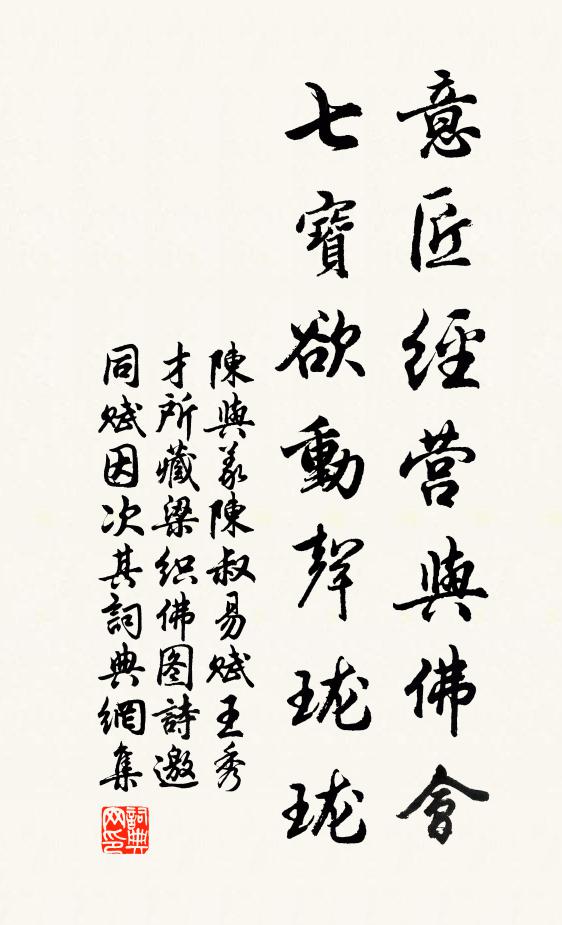 意匠經營與佛會
七寶欲動聲瓏瓏
陳與義陳叔易賦王秀
才所藏梁织佛图詩邀
同賦因次其詞典網集
詞典
网印